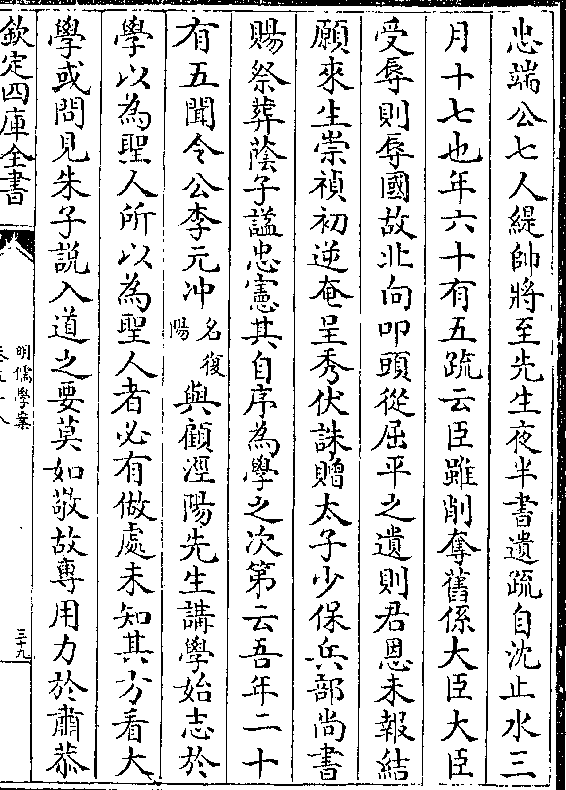 忠端公七人緹帥將至先生夜半書遺疏自沈止水三
月十七也年六十有五疏云臣雖削奪舊係大臣大臣
受辱則辱國故北向叩頭從屈平之遺則君恩未報結
願來生崇禎初逆奄呈秀伏誅贈太子少保兵部尚書
賜祭葬蔭子諡忠憲其自序為學之次第云吾年二十
有五聞令公李元沖名復陽與顧涇陽先生講學始志於
學以為聖人所以為聖人者必有做處未知其方看大
學或問見朱子說入道之要莫如敬故專用力於肅恭
欽定四庫全書
明儒學案
三十九